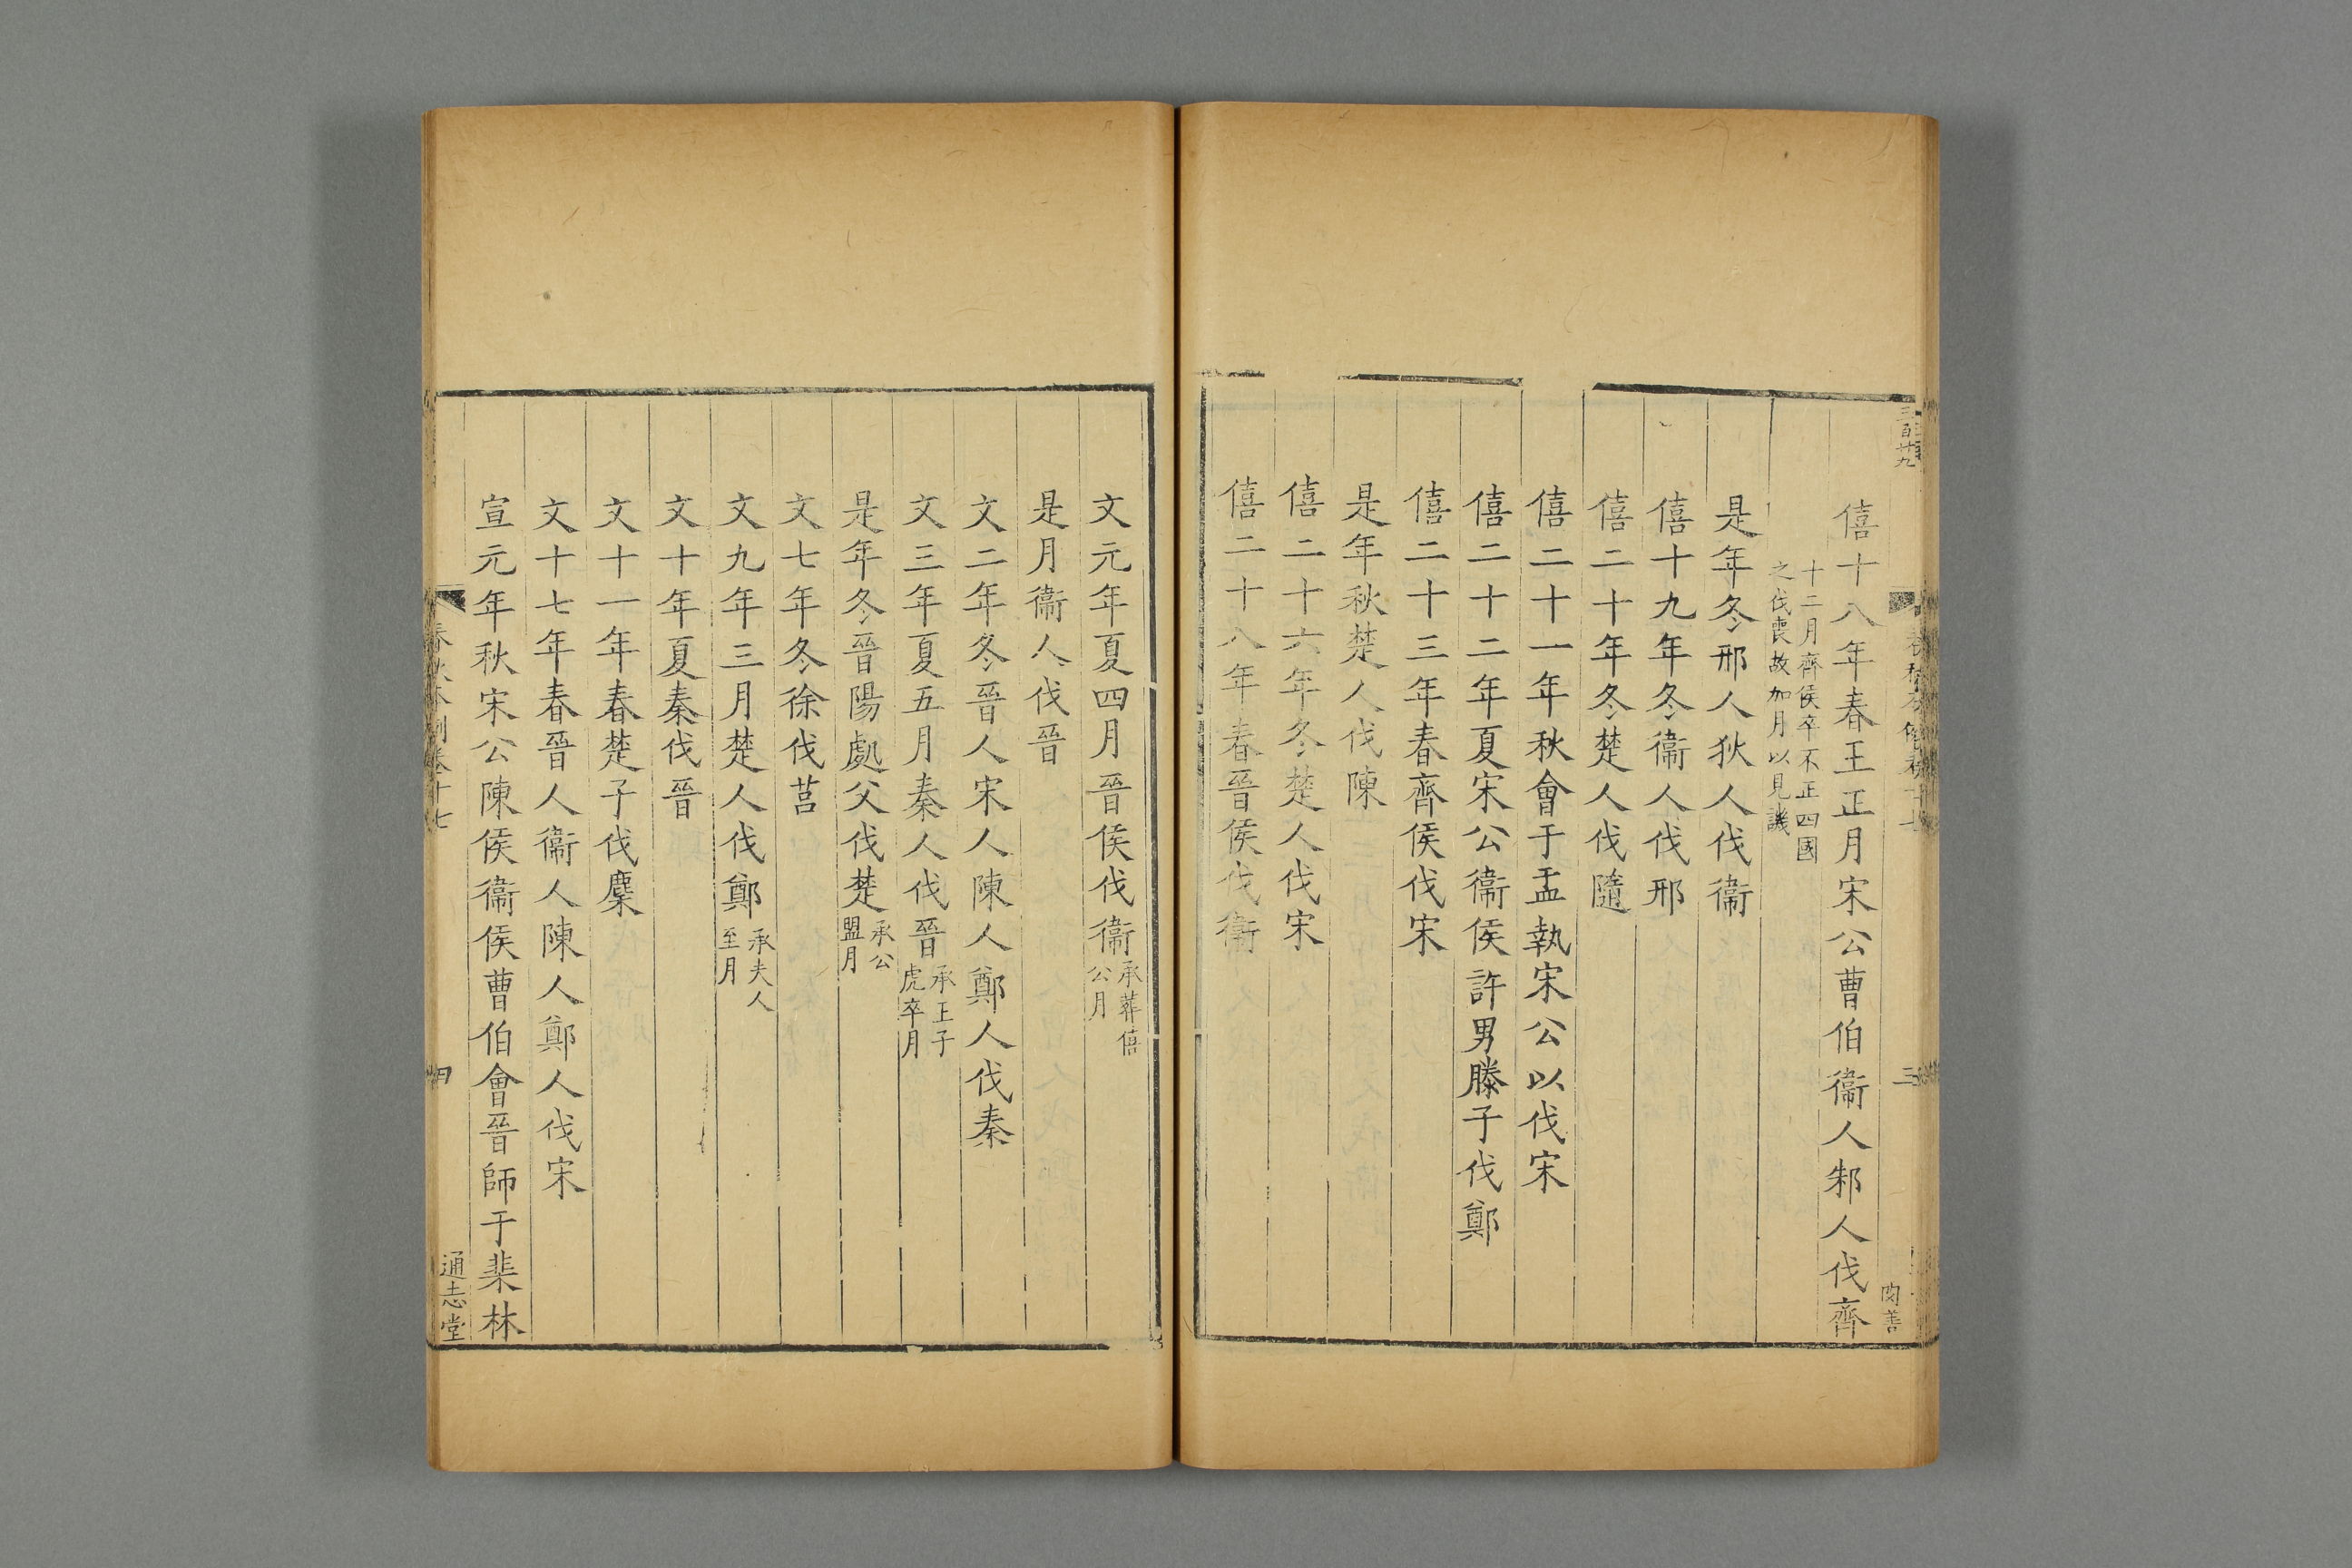 三百廿九
僖十八年春王正月宋公曹伯衞人邾人伐齊
十二月齊侯卒不正四國
之伐喪故加月以見譏
是年冬邢人狄人伐衞
僖十九年冬衞人伐邢
僖二十年冬楚人伐隨
僖二十一年秋會于盂執宋公以伐宋
僖二十二年夏宋公衞侯許男滕子伐鄭
僖二十三年春齊侯伐宋
是年秋楚人伐陳
僖二十六年冬楚人伐宋
僖二十八年春晉侯伐衞
文元年夏四月晉侯伐衞承葬僖公月
是月衞人伐晉
文二年冬晉人宋人陳人鄭人伐秦
文三年夏五月秦人伐晉承王子虎卒月
是年冬晉陽處父伐楚承公盟月
文七年冬徐伐莒
文九年三月楚人伐鄭承夫人至月
文十年夏秦伐晉
文十一年春楚子伐麇
文十七年春晉人衞人陳人鄭人伐宋
宣元年秋宋公陳侯衞侯曹伯會晉師于棐林
春秋本例卷十七
四
通志堂